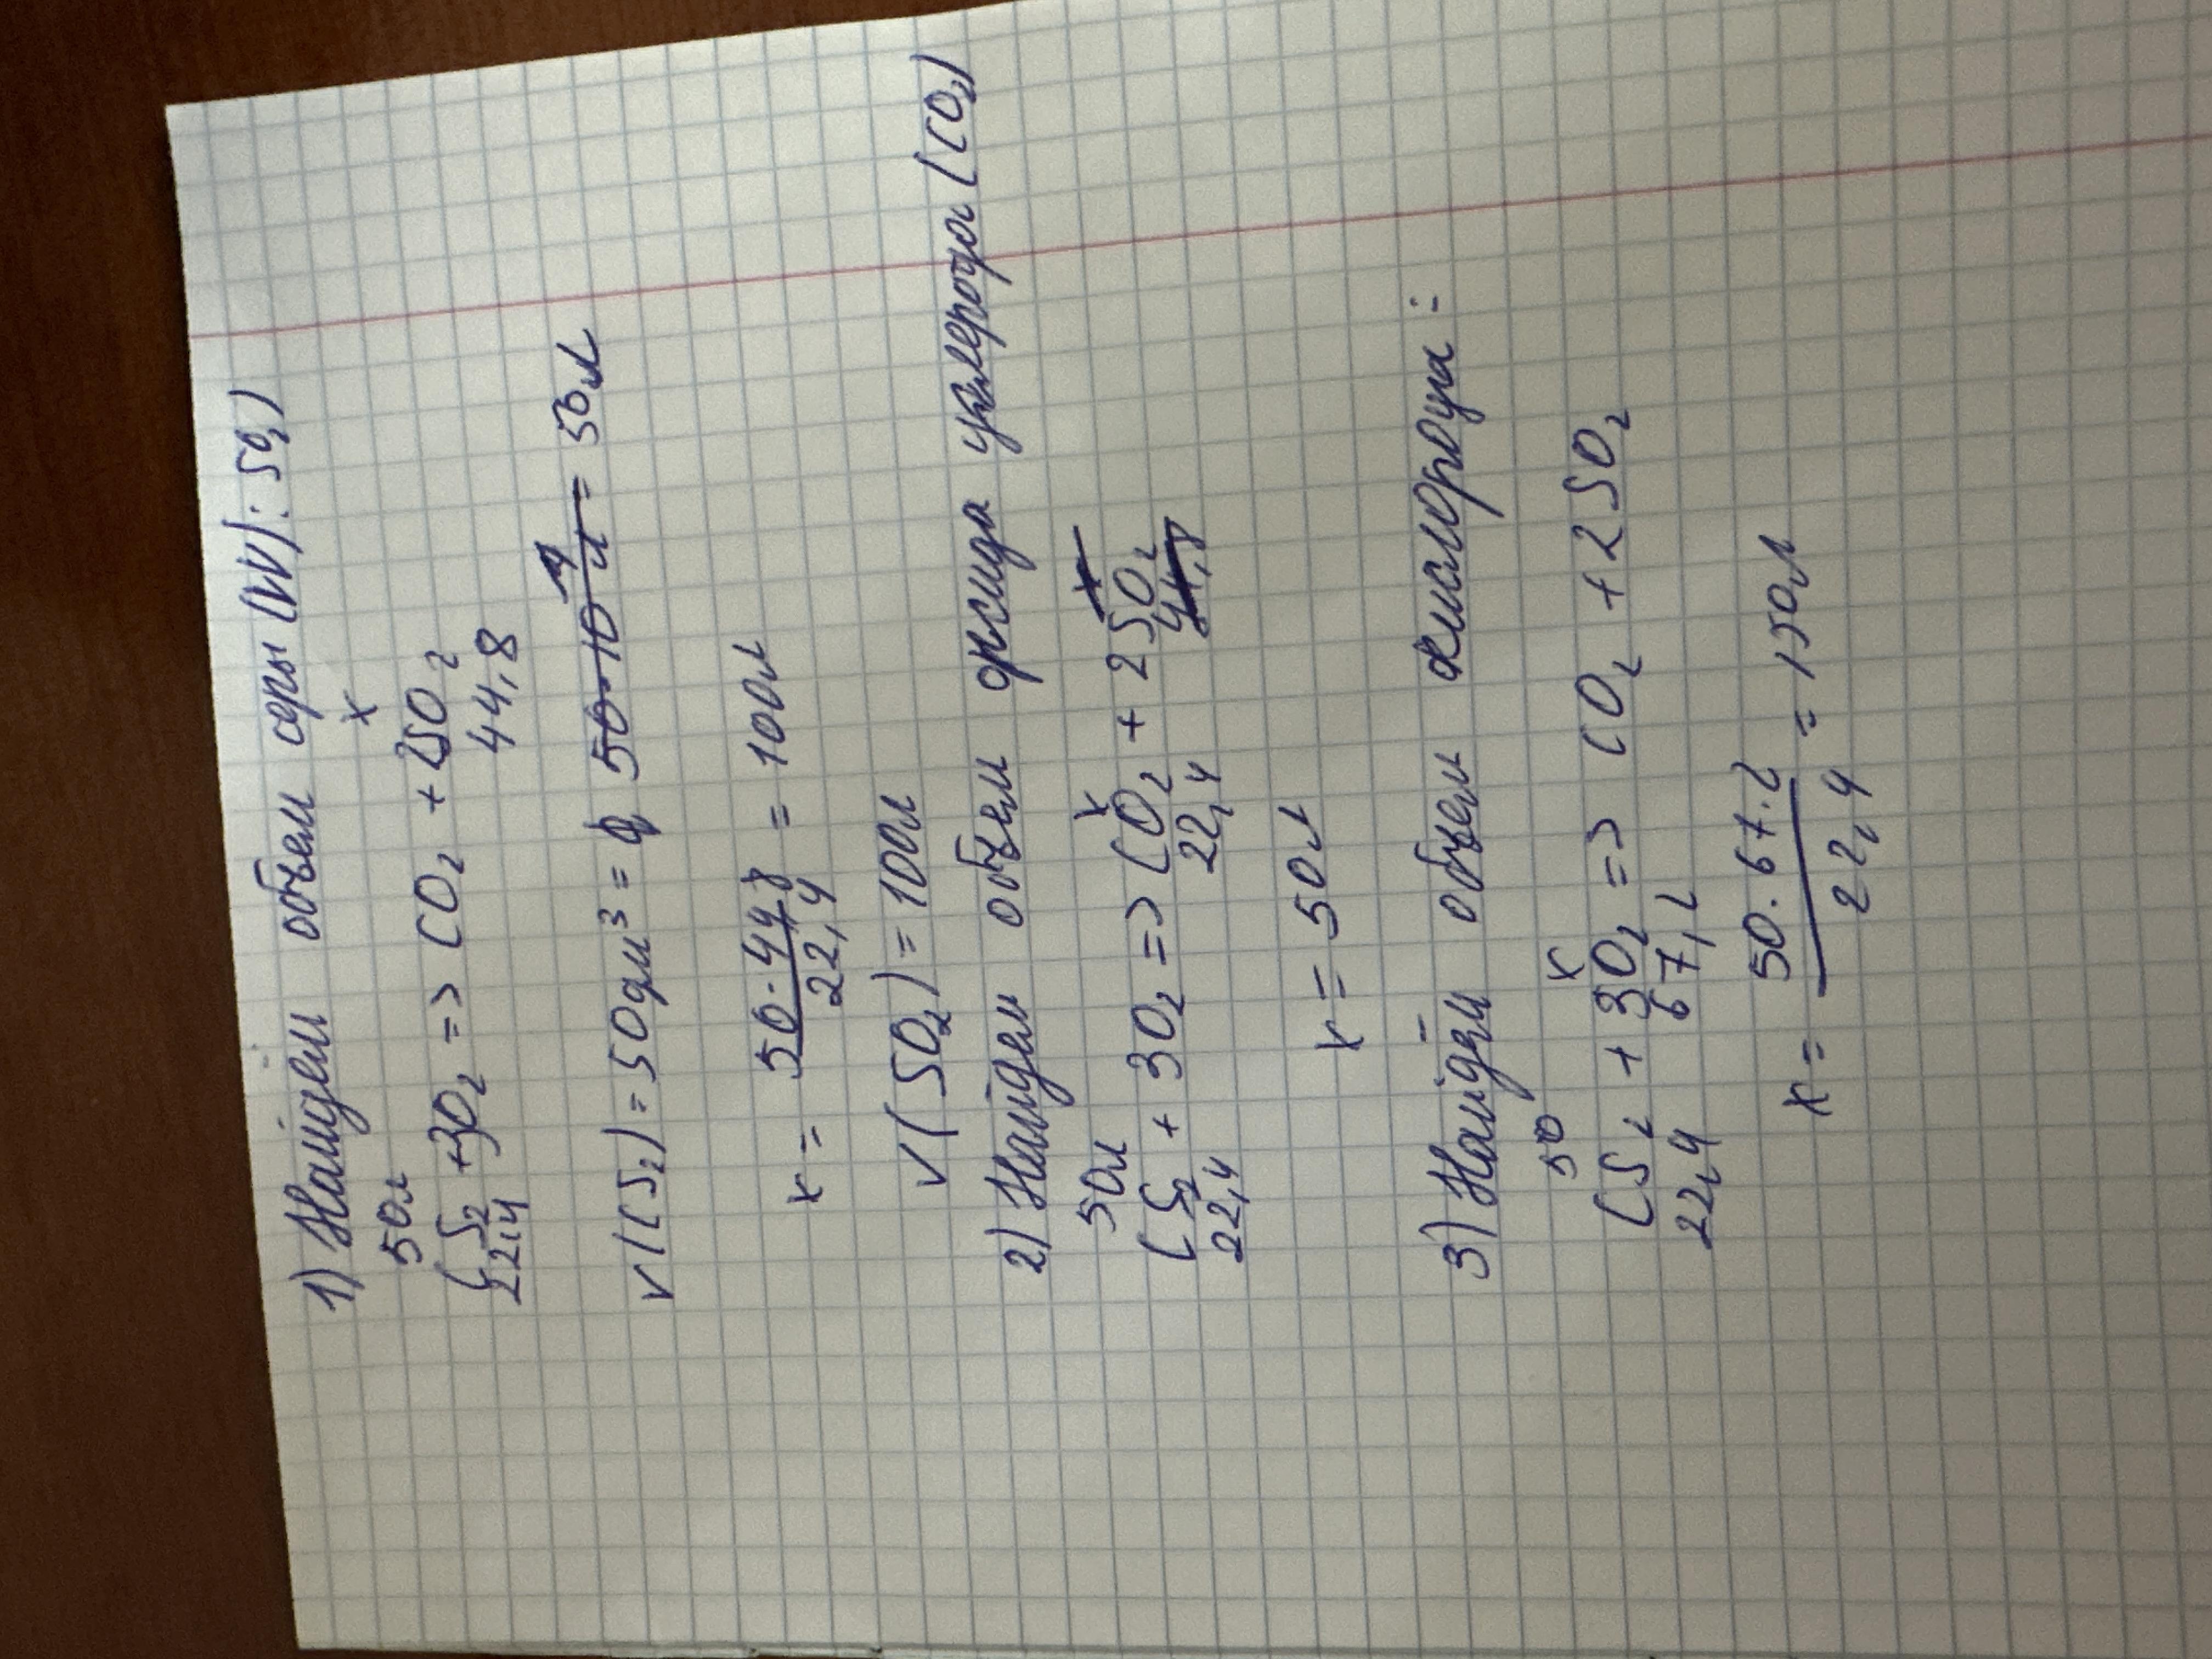 1) Найдём объем серы (IV): SO₂)
50л x
CS₂ + 3O₂ => CO₂ + 2SO₂
22,4 44,8
V(CS₂) = 50дм³ = 50л
x = 50·44,8 / 22,4 = 100л
V(SO₂) = 100л
2) Найдём объем оксида углерода (CO₂)
50л x
CS₂ + 3O₂ => CO₂ + 2SO₂
22,4 22,4
x = 50л
3) Найдём объем кислорода:
50 x
CS₂ + 3O₂ => CO₂ + 2SO₂
22,4 67,2
x = 50·67.2 / 22,4 = 150л